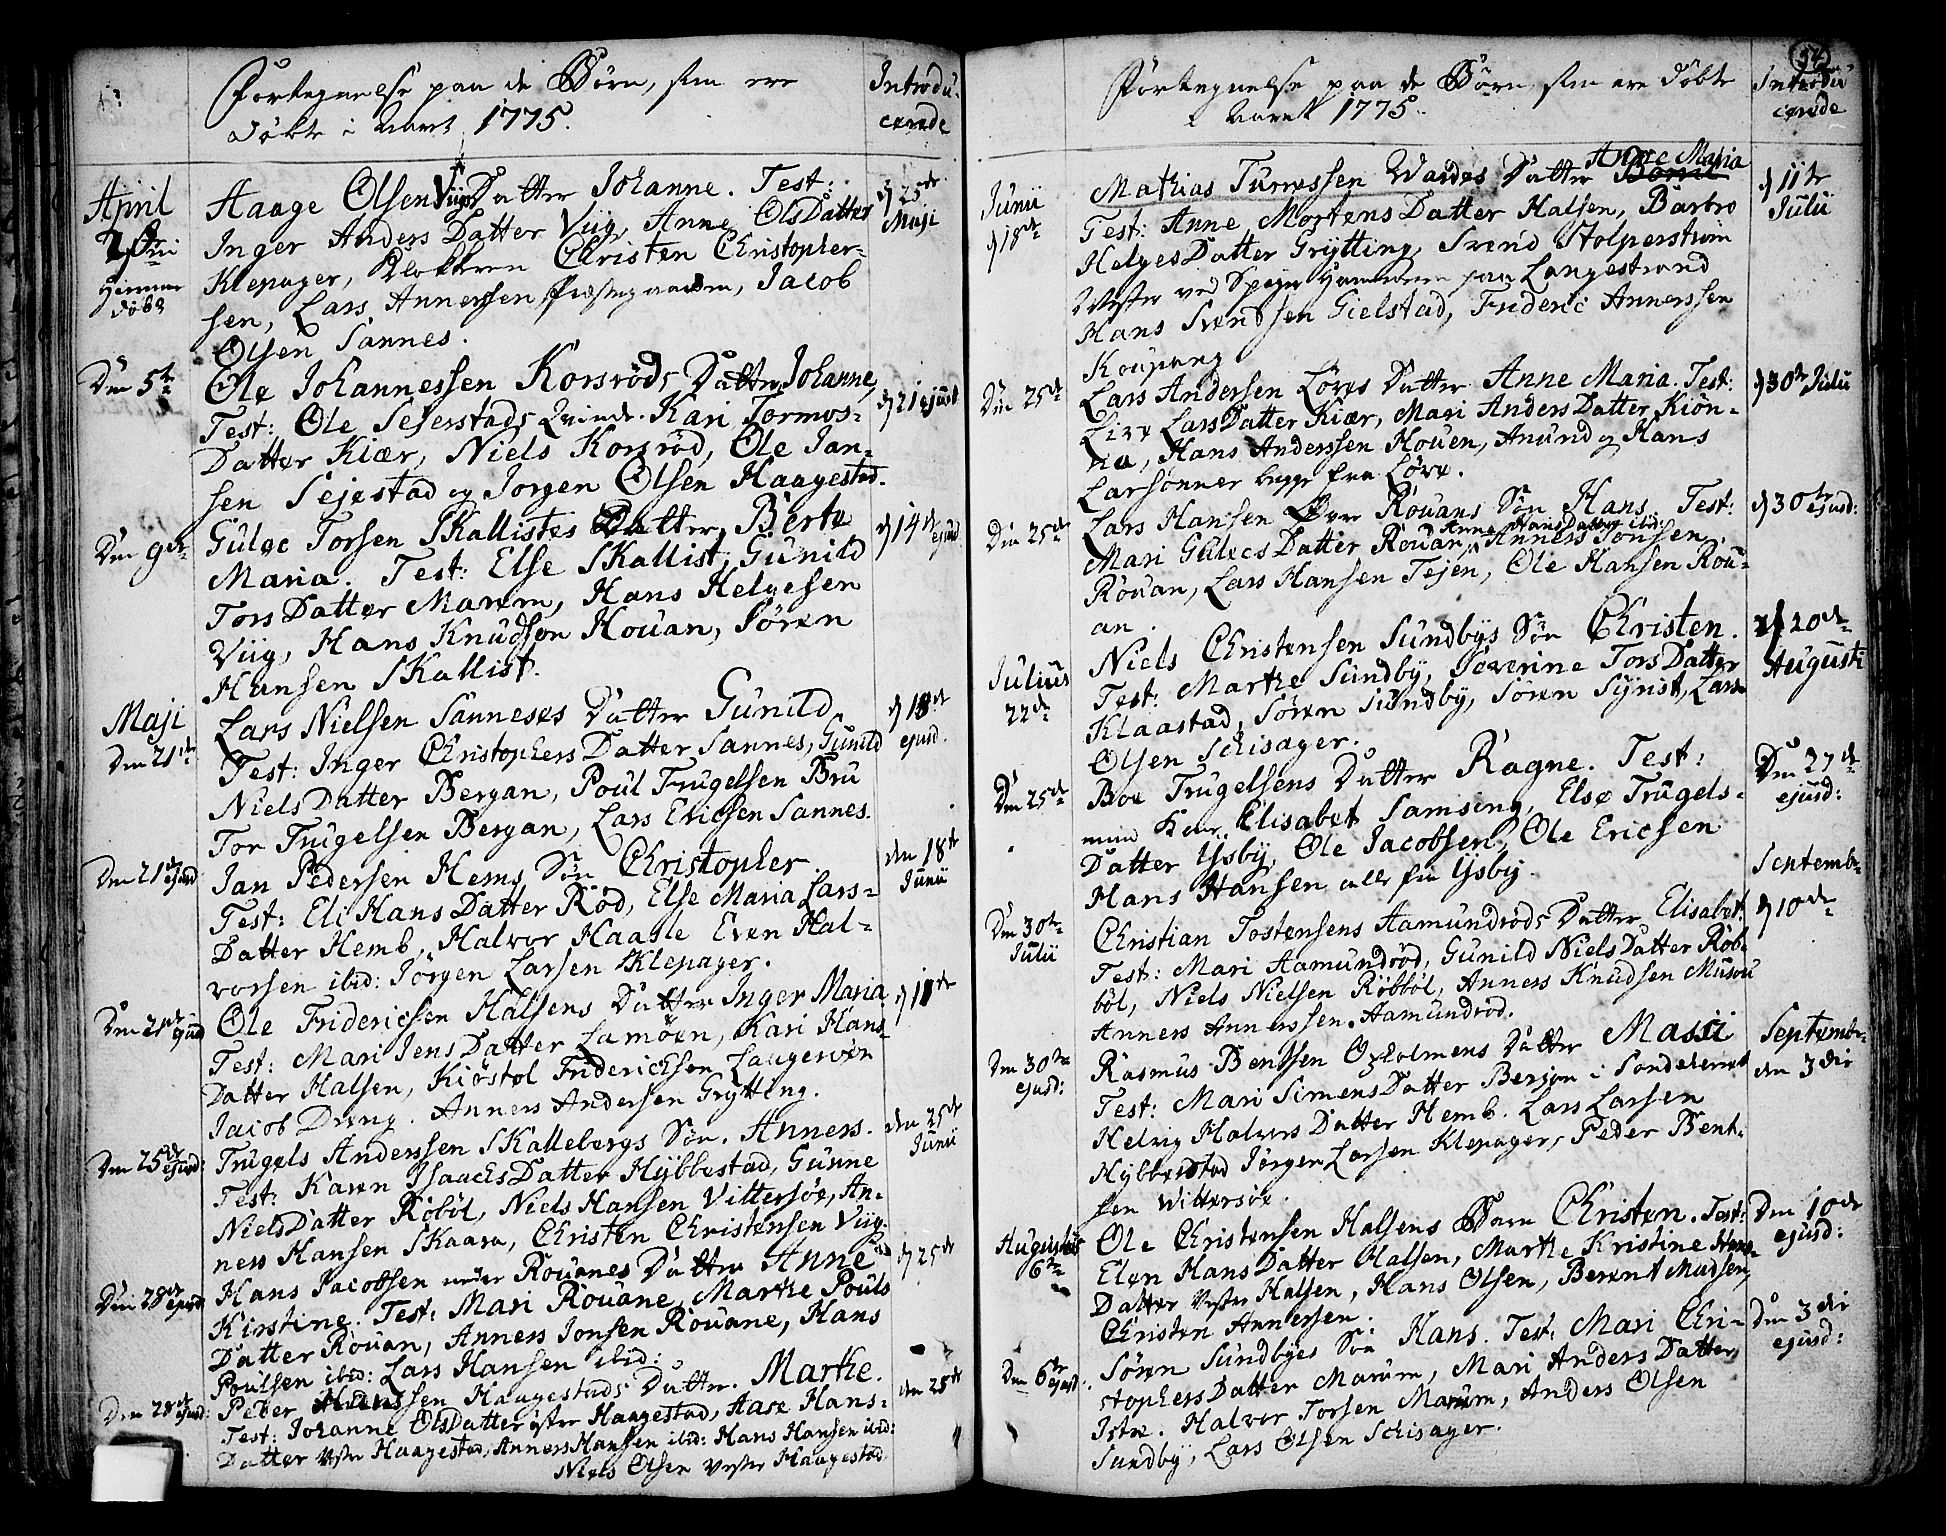 Fortegnelse paa de Børn, som ere
døbte i Aaret 1775.
Introdu-
cerede
April
2den
Hiemme
døbt
Aage Olsen Viigs Datter Johanne. Test:
Inger Anders Datter Viig, Anne OlsDatter
Klepager, Klokkeren Christen Christopher-
sen, Lars Annerssen Præstegaarden, Jacob
Olsen Sannes.
d 25de
Maji
Den 5te
Ole Johannessen Korsrøds Datter Johanne,
Test: Ole Sejerstads Qvinde. Kari Tormos-
Datter Kiær, Niels Korsrød, Ole Jan-
sen Sejestad og Jorgen Olsen Haagestad.
d 21 ejusd
Den 9de
Guloc Torsen Skallistes Datter, Berte
Maria. Test: Else Skallist, Gunild
TorsDatter Marem, Hans Helgesen
Viig, Hans Knudsen Houan, Søren
Hansen Skallist.
d 14de
ejusd
Maji
Den 21de
Lars Nielsen Sanneses Datter Gunild
Test: Inger Christophers Datter Sannes, Gunild
NielsDatter Bergan, Poul Trugelsen Bru
Tor Trugelsen Bergan, Lars Ericsen Sannes.
d 18de
ejusd.
Den 21de
ejusd
Jan Pedersen Hems Søn Christopher
Test: Eli HansDatter Rød, Else Maria Lars-
Datter Hemb, Halvor Haasle Even Hal-
vorsen ibid: Jørgen Larsen Klepager.
den 18de
Junii
Den 21de
ejusd
Ole Fridericsen Halsens Datter Inger Maria
Test: Mari JensDatter Lamøen, Kari Hans
Datter Halsen, Kiøstol Friderichsen Langerven
Jacob Dreng. Anners Andersen Grytting.
d 11te
Den 25de
ejusd:
Trugels Anderssen Skallebergs Søn. Anners.
Test: Karen IsaachsDatter Hybbestad, Gunne
NielsDatter Røbøl, Niels Hansen Vittersøe, An-
ners Hansen Skaara, Christen Christensen Viig.
den 25de
Junii
Den 28de
ejusd
Hans Jacobsen under Rouanes Datter Anne
Kirstine. Test: Mari Rouane, Marthe Pouls
Datter Rouan, Anners Jonsen Rouane, Hans
Poulsen ibid: Lars Hansen ibid:
d 25de
Den 28de
ejusd:
Peder Hanssen Haagestads Datter. Marthe.
Test: Johanne OlsDatter øster Haagestad, Aase Hans-
Datter Vester Haagestad, Anners Hansen ibid: Hans Hansen ibid:
Niels Olsen Vester Haagestad
den 25de
Fortegnelse paa de Børn, som ere døbte
i Aaret 1775.
Introdu-
cerede
Junii
d 18de
Anne Maria
Mathias Turressen Wardes Datter
Test: Anne Mortens Datter Halsen, Barbro
HelgesDatter Grytting, Svend Stolperstrøm
Mester ved Spiger Hammeren paa Langestrand
Hans Svendsen Gielstad, Frideric Annerssen
Koupang
d 11te
Julii
Den 25de
Lars Andersen Løves Datter Anne Maria. Test:
Live LarsDatter Kiær, Mari AndersDatter Kiøn-
na, Hans Anderssen Houen, Anund og Hans
Larsønner begge fra Løve.
d 30te Julii
Den 25de
Lars Hansen Øvre Rouans Søn Hans. Test:
Anne HansDatter ibid:
Mari GulecsDatter Rouan, Anners Jonsen
Rouan, Lars Hansen Tejen, Ole Hansen Rou-
an.
d 30te
ejusd:
Julius
22de
Niels Christensen Sundbys Søn Christen.
Test: Marthe Sundby, Severine TorsDatter
Klaastad, Søren Sundby, Søren Syrist, Lars
Olsen Schisager.
d 20de
Augusti
Den 25de
Boe Trugelsens Datter Ragne. Test:
Elisabet Samsing, Else Trugels-
Datter Ysby, Ole Jacobsen, Ole Ericsen
Hans Hansen alle fra Ysby.
Den 27de
ejusd:
Den 30te
Julii
Christian Tostensens Aamundrøds Datter Elisabet.
Test: Mari Aamundrød, Gunild NielsDatter Røb-
bøl, Niels Nielsen Røbbøl, Anners Knudsen Musou
Anners Annerssen Aamundrød.
Septembr
d 10de
Den 30te
ejusd:
Rasmus Bentsen Oxholmens Datter Massi
Test: Mari SimensDatter Bersøn i Sandeherret
Helvig Halvors Datter Hemb. Lars Larsen
Hybberstad Jørgen Larsen Klepager, Peder Bent-
sen Wittersøe.
Septembr
den 3die
Augustus
6te
Ole Christensen Halsens Barn Christen. Test:
Elen HansDatter Halsen, Marthe Kristine Hans-
Datter Vestre Halsen, Hans Olsen, Berent Madsen,
Christen Annersen.
Den 10de
ejusd:
Den 6te
ejusd.
Søren Sundbyes Søn Hans. Test: Mari Chri-
stophersDatter Marum, Mari Anders Datter
Istre. Halvor Torsen Marum, Anders Olsen
Sundby, Lars Olsen Schisager.
Den 3die
ejusd: